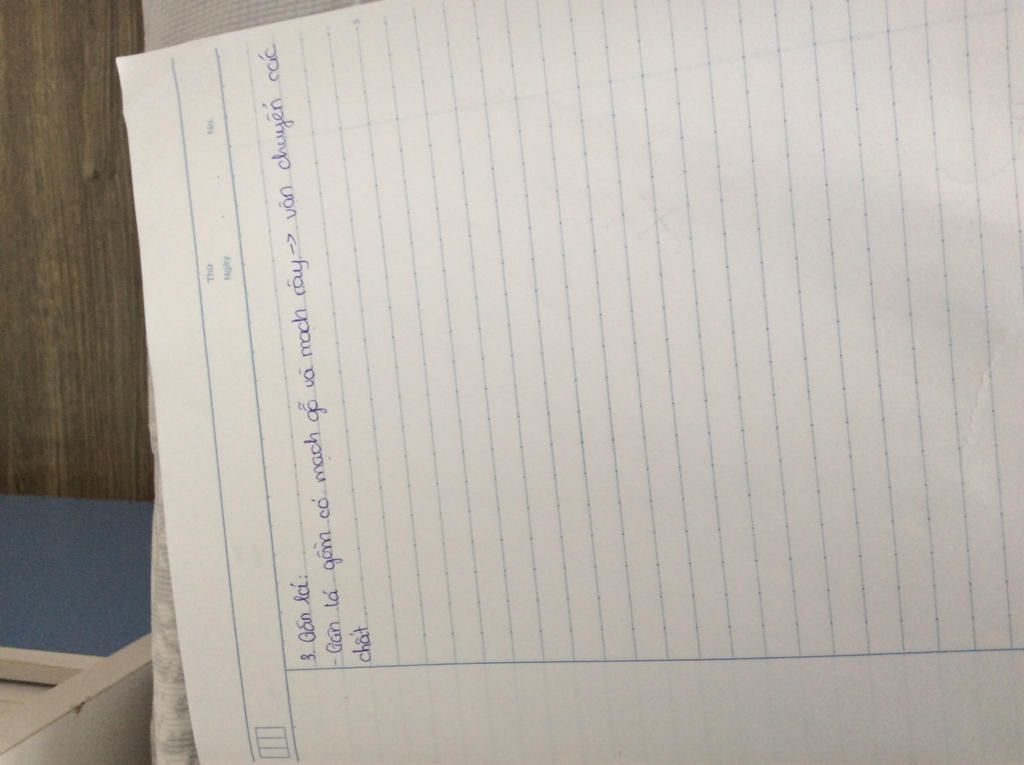 Thứ
Ngày
No.
3. Gân lá:
- Gân lá gồm có mạch gỗ và mạch rây -> vận chuyển các
chất